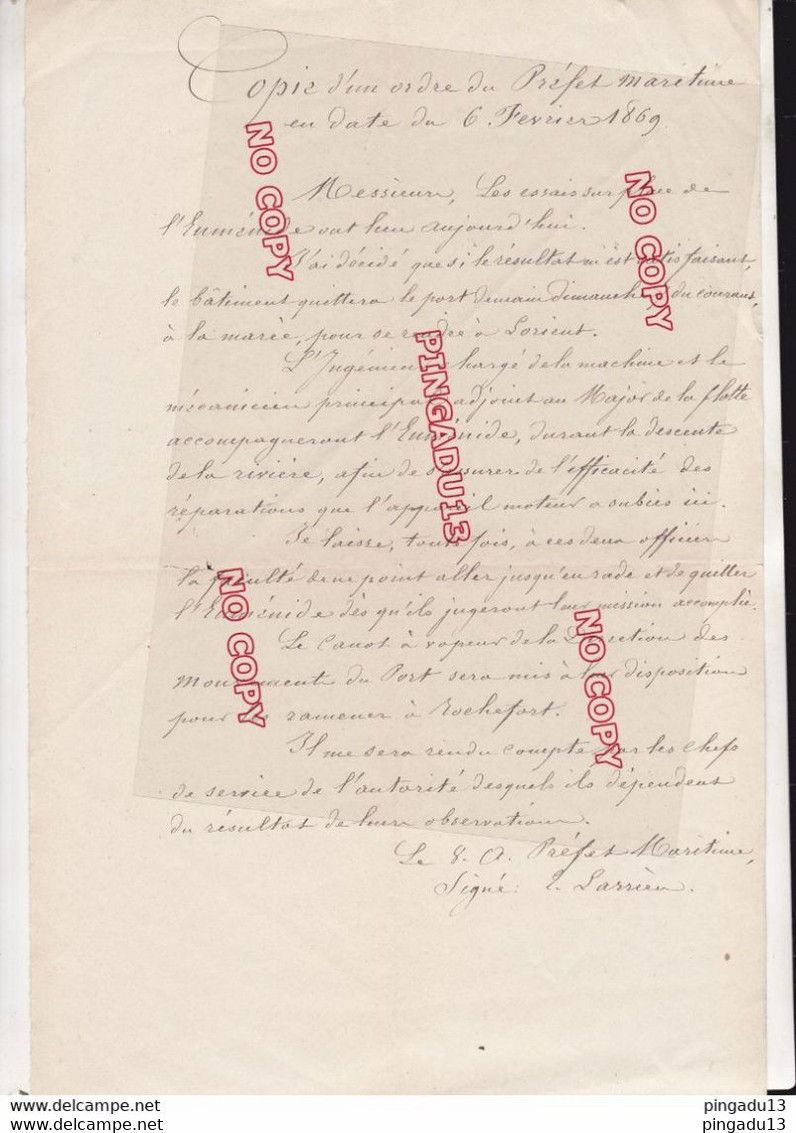 Copie d'un ordre du Préfet maritime
en date du 6 Fevrier 1869.
Messieurs, Les essais sur place de
l'Euménide ont lieu aujourd'hui.
J'ai décidé que si le résultat m'est satisfaisant,
le bâtiment quittera le port demain dimanche du courant,
à la marée, pour se rendre à Lorient.
L'Ingénieur chargé de la machine et le
mécanicien principal adjoint au Major de la flotte
accompagneront l'Euménide, durant la descente
de la rivière, afin de s'assurer de l'efficacité des
réparations que l'appareil moteur a subies ici.
Je laisse, toutefois, à ces deux officiers
la faculté de ne point aller jusqu'en rade et de quitter
l'Euménide dès qu'ils jugeront leur mission accomplie.
Le Canot à vapeur de la Direction des
Mouvements du Port sera mis à leur disposition
pour les ramener à Rochefort.
Il me sera rendu compte par les chefs
de service de l'autorité desquels ils dépendent
du résultat de leurs observations.
Le Préfet Maritime,
Signé: Larrieu.
NO COPY
NO COPY
PINGADU13
NO COPY
NO COPY
pingadu13
pingadu13
pingadu13
pingadu13